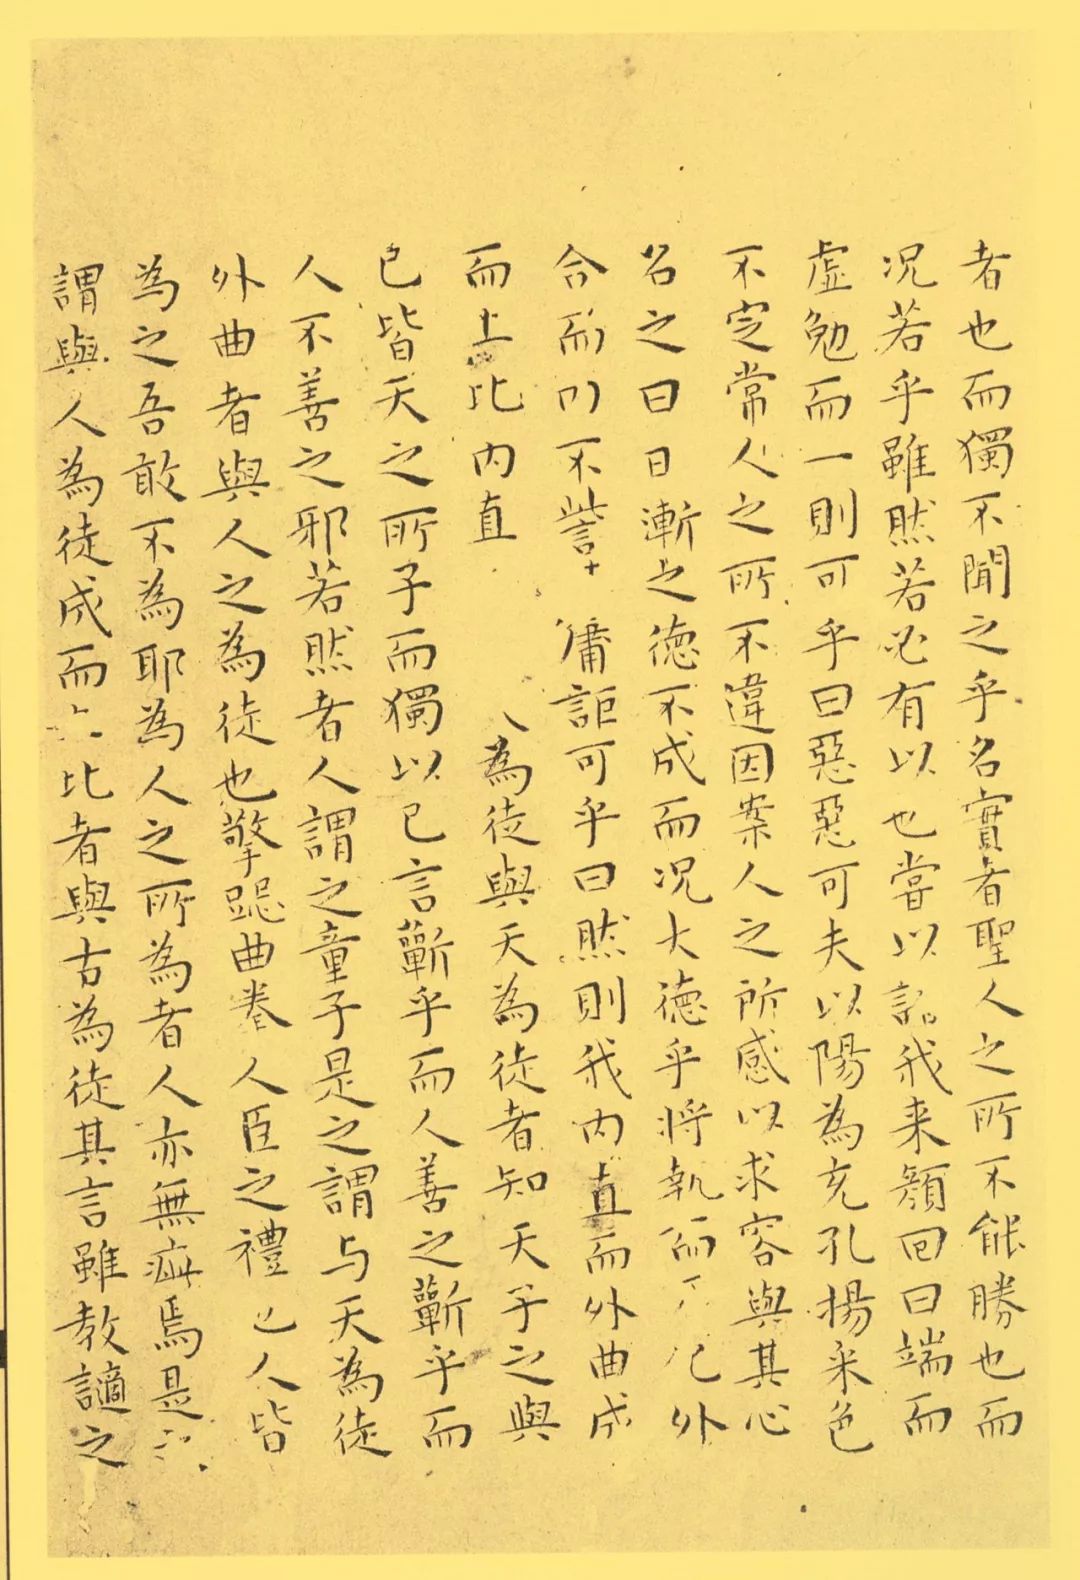 者也而獨不聞之乎名實者聖人之所不能勝也而
况若乎雖然若必有以也嘗以語我来顔回曰端而
虚勉而一則可乎曰惡惡可夫以陽為充孔揚采色
不定常人之所不違因案人之所感以求容與其心
名之曰日漸之德不成而况大德乎將執而 外
合而 不訾 庸詎可乎曰然則我内直而外曲成
而上比内直 為徒與天為徒者知天子之與
己皆天之所子而獨以己言蘄乎而人善之蘄乎而
人不善之邪若然者人謂之童子是之謂与天為徒
外曲者與人之為徒也擎跽曲拳人臣之禮也人皆
為之吾敢不為耶為人之所為者人亦無疵焉是
謂與人為徒成而 比者與古為徒其言雖教讁之